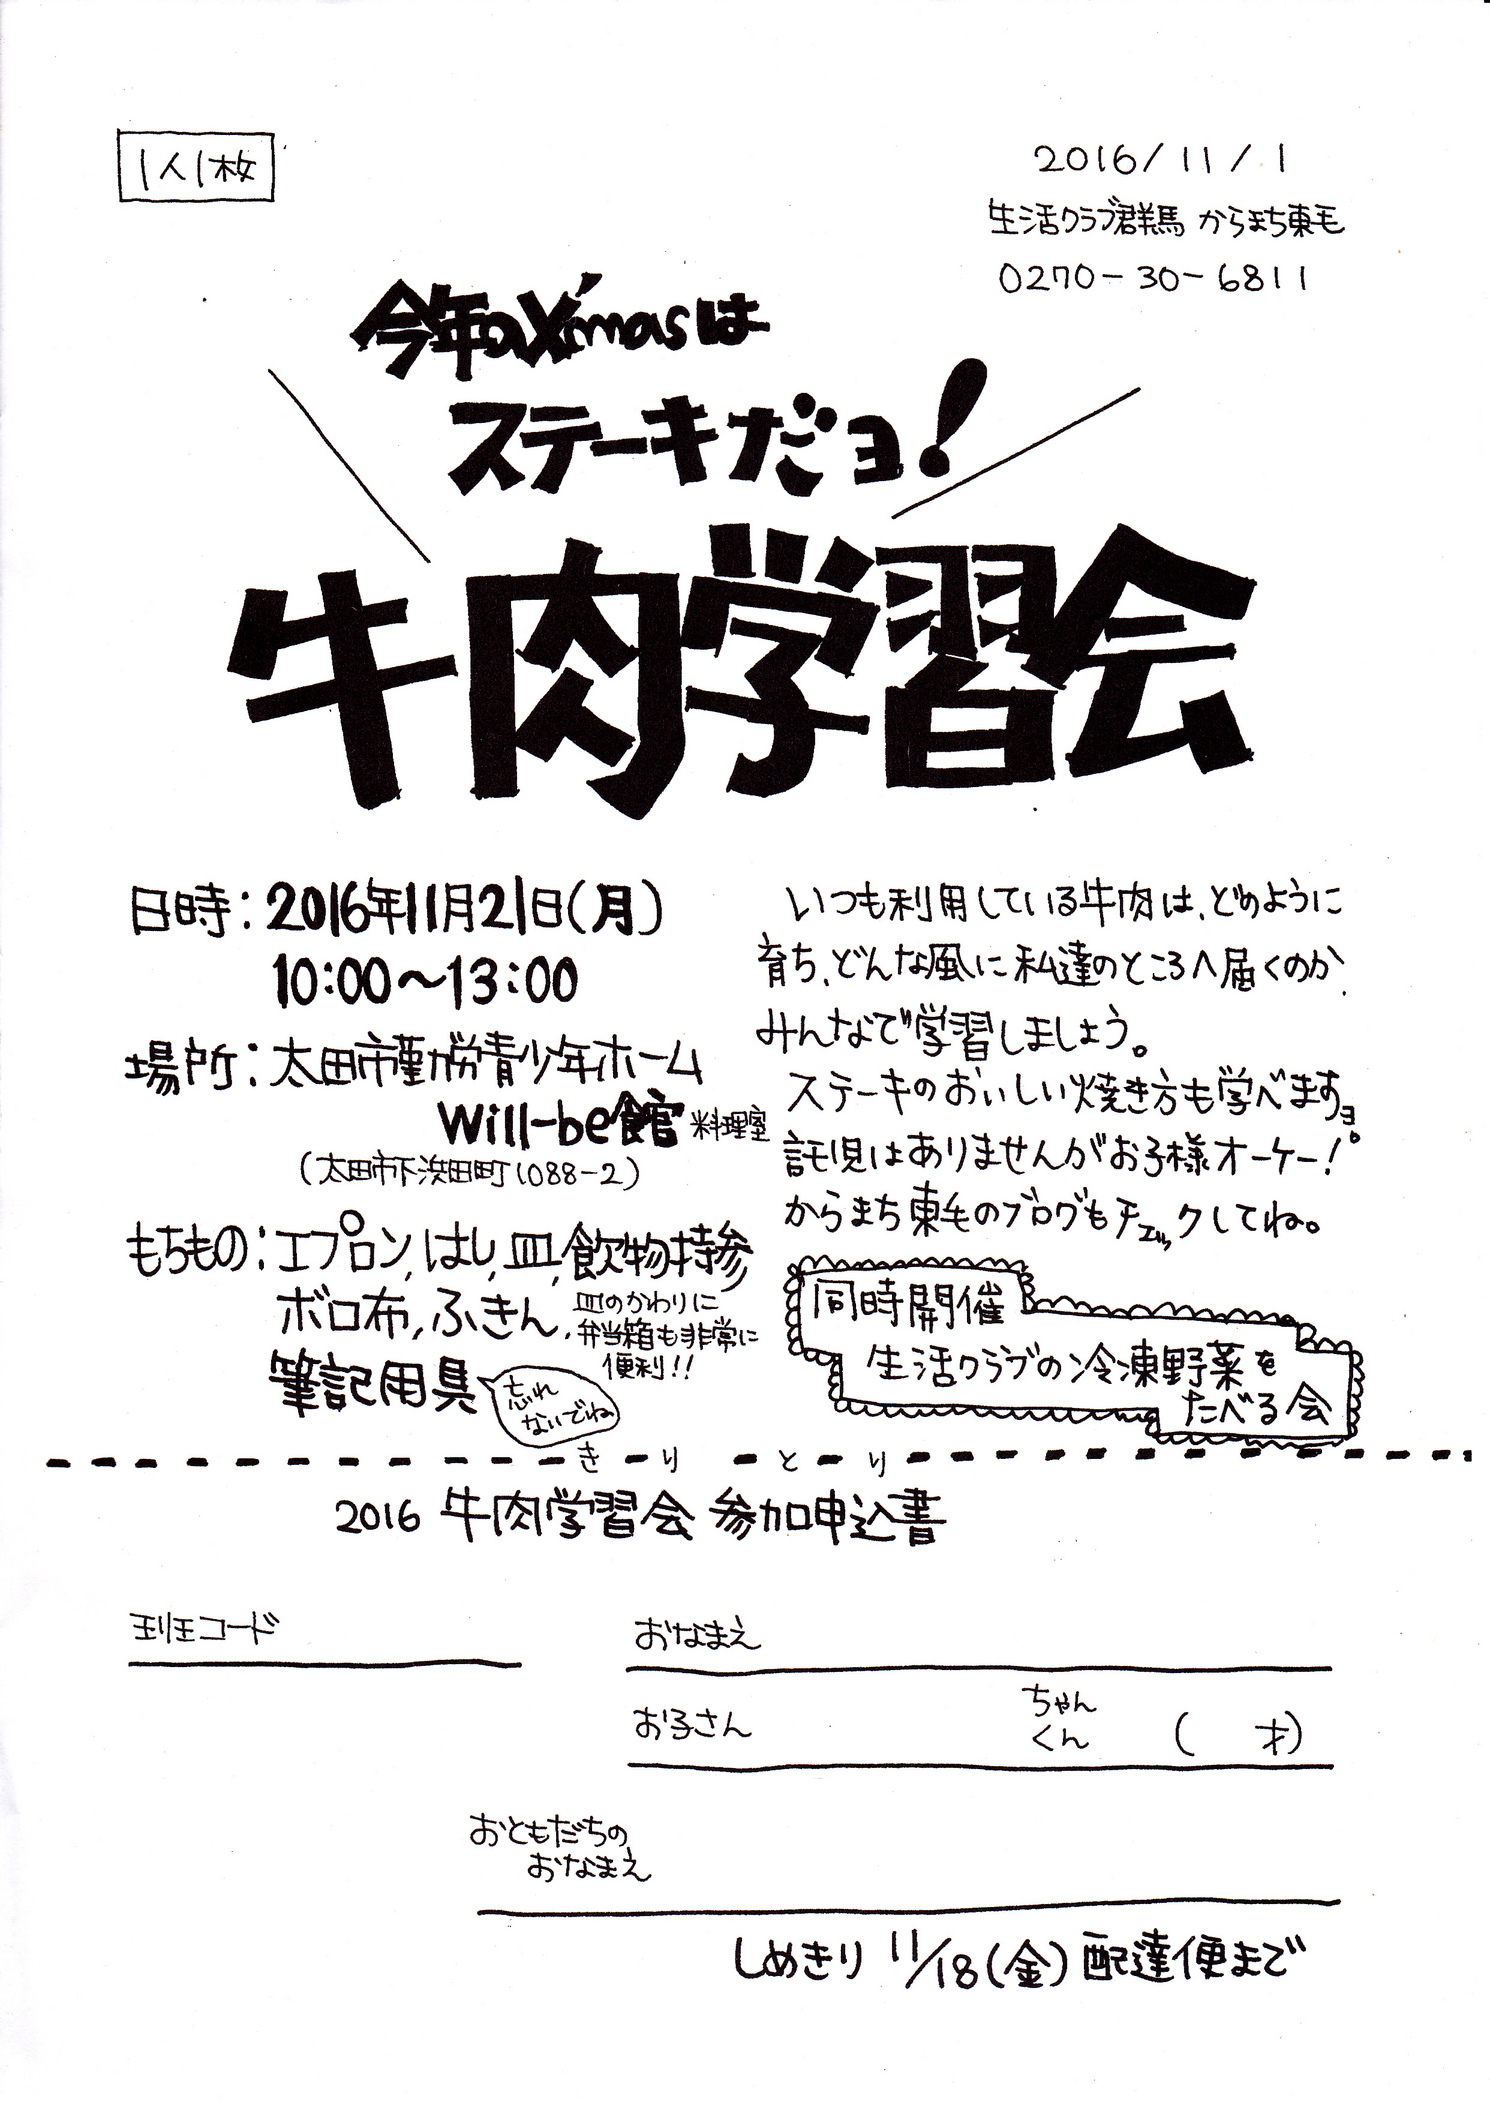 1人1枚
2016/11/1
生活クラブ群馬 からまち東毛
0270-30-6811
今年のX'masは
ステーキだョ!
牛肉学習会
日時:2016年11月21日(月)
10:00~13:00
場所:太田市勤労青少年ホーム
Will-be館 料理室
(太田市下浜田町1088-2)
もちもの:エプロン,はし,皿,飲物持参
ボロ布,ふきん,
皿のかわりに
弁当箱も非常に
便利!!
筆記用具
忘れ
ないでね
いつも利用している牛肉は、どのように
育ち、どんな風に私達のところへ届くのか、
みんなで学習しましょう。
ステーキのおいしい焼き方も学べますョ。
託児はありませんがお子様オーケー!
からまち東毛のブログもチェックしてね。
同時開催
生活クラブの冷凍野菜を
たべる会
きりとり
2016 牛肉学習会 参加申込書
班コード
おなまえ
お子さん
ちゃん
くん
( 才)
おともだちの
おなまえ
しめきり 11/18(金)配達便まで